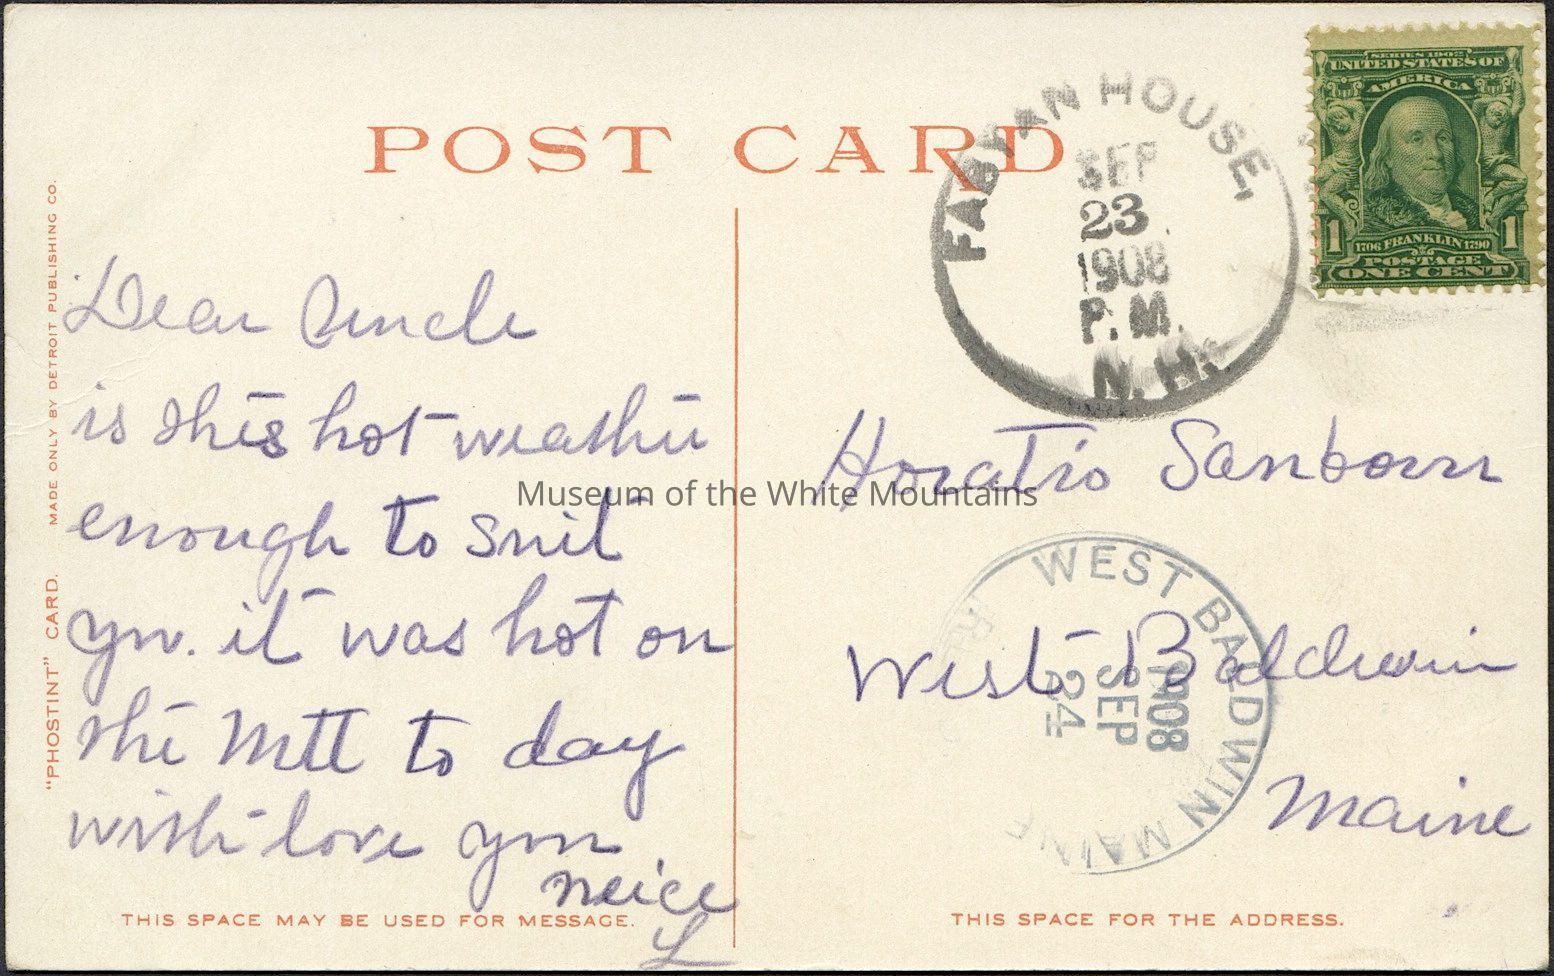 POST CARD
FABYAN HOUSE,
SEP
23
1908
P.M.
N.H.
SERIES 1902
UNITED STATES OF
AMERICA
1706 FRANKLIN 1790
1 1
POSTAGE
ONE CENT
"PHOSTINT" CARD. MADE ONLY BY DETROIT PUBLISHING CO.
Dear Uncle
is this hot weather
enough to suit
you. it was hot on
the Mtt to day
with love your
neice
L
Horatio Sanborn
West Baldwin
Maine
WEST BALDWIN MAINE
1908
SEP
24
Museum of the White Mountains
THIS SPACE MAY BE USED FOR MESSAGE.
THIS SPACE FOR THE ADDRESS.